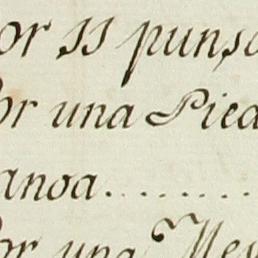 or 11 punso
or una Pied
anoa..........
or una Mes